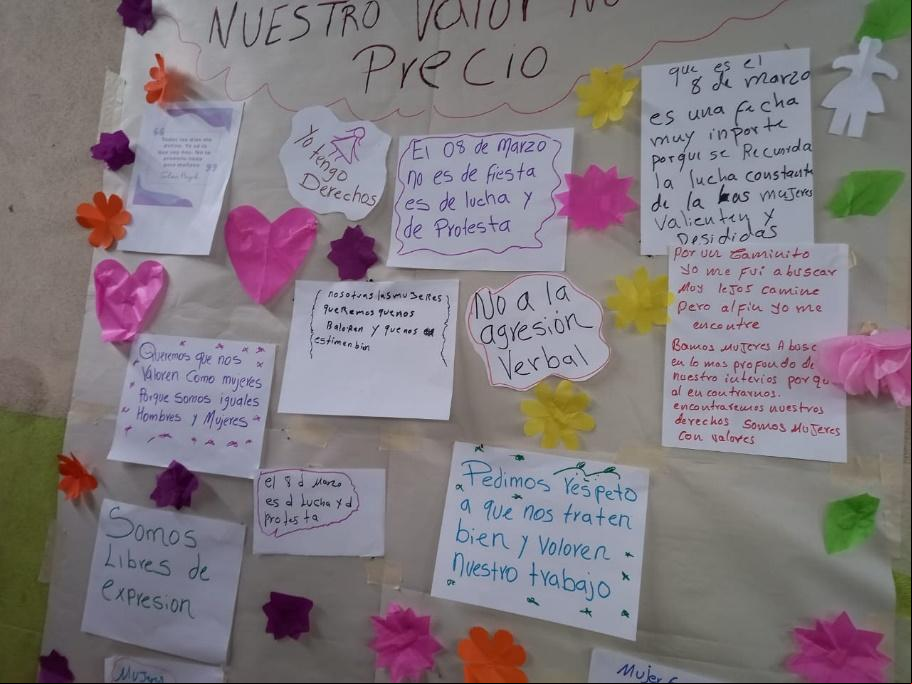 NUESTRO Valor NO
Precio
Yo tengo
Derechos
El 08 de Marzo
no es de fiesta
es de lucha y
de Protesta
que es el
8 de marzo
es una fecha
muy inporte
porqui se Recuerda
la lucha constante
de la las mujeres
valienten y
Desididas
nosotras las mujeres
queremos quenos
Baloren y que nos
estimen bien
No a la
agresión
verbal
Por un Caminito
yo me fui a buscar
Muy lejos camine
Pero al fin yo me
encontre
Bamos Mujeres A busc
en lo mas profundo de
nuestro interios por qu
al encontrarnos.
encontraremos nuestros
derechos somos Mujeres
con valores
Queremos que nos
Valoren Como mujeres
Porque Somos iguales
Hombres y Mujeres
el 8 d Marzo
es d Lucha y d
protesta
Pedimos respeto
a que nos traten
bien y Voloren
nuestro trabajo
Somos
Libres de
expresion
Mujer